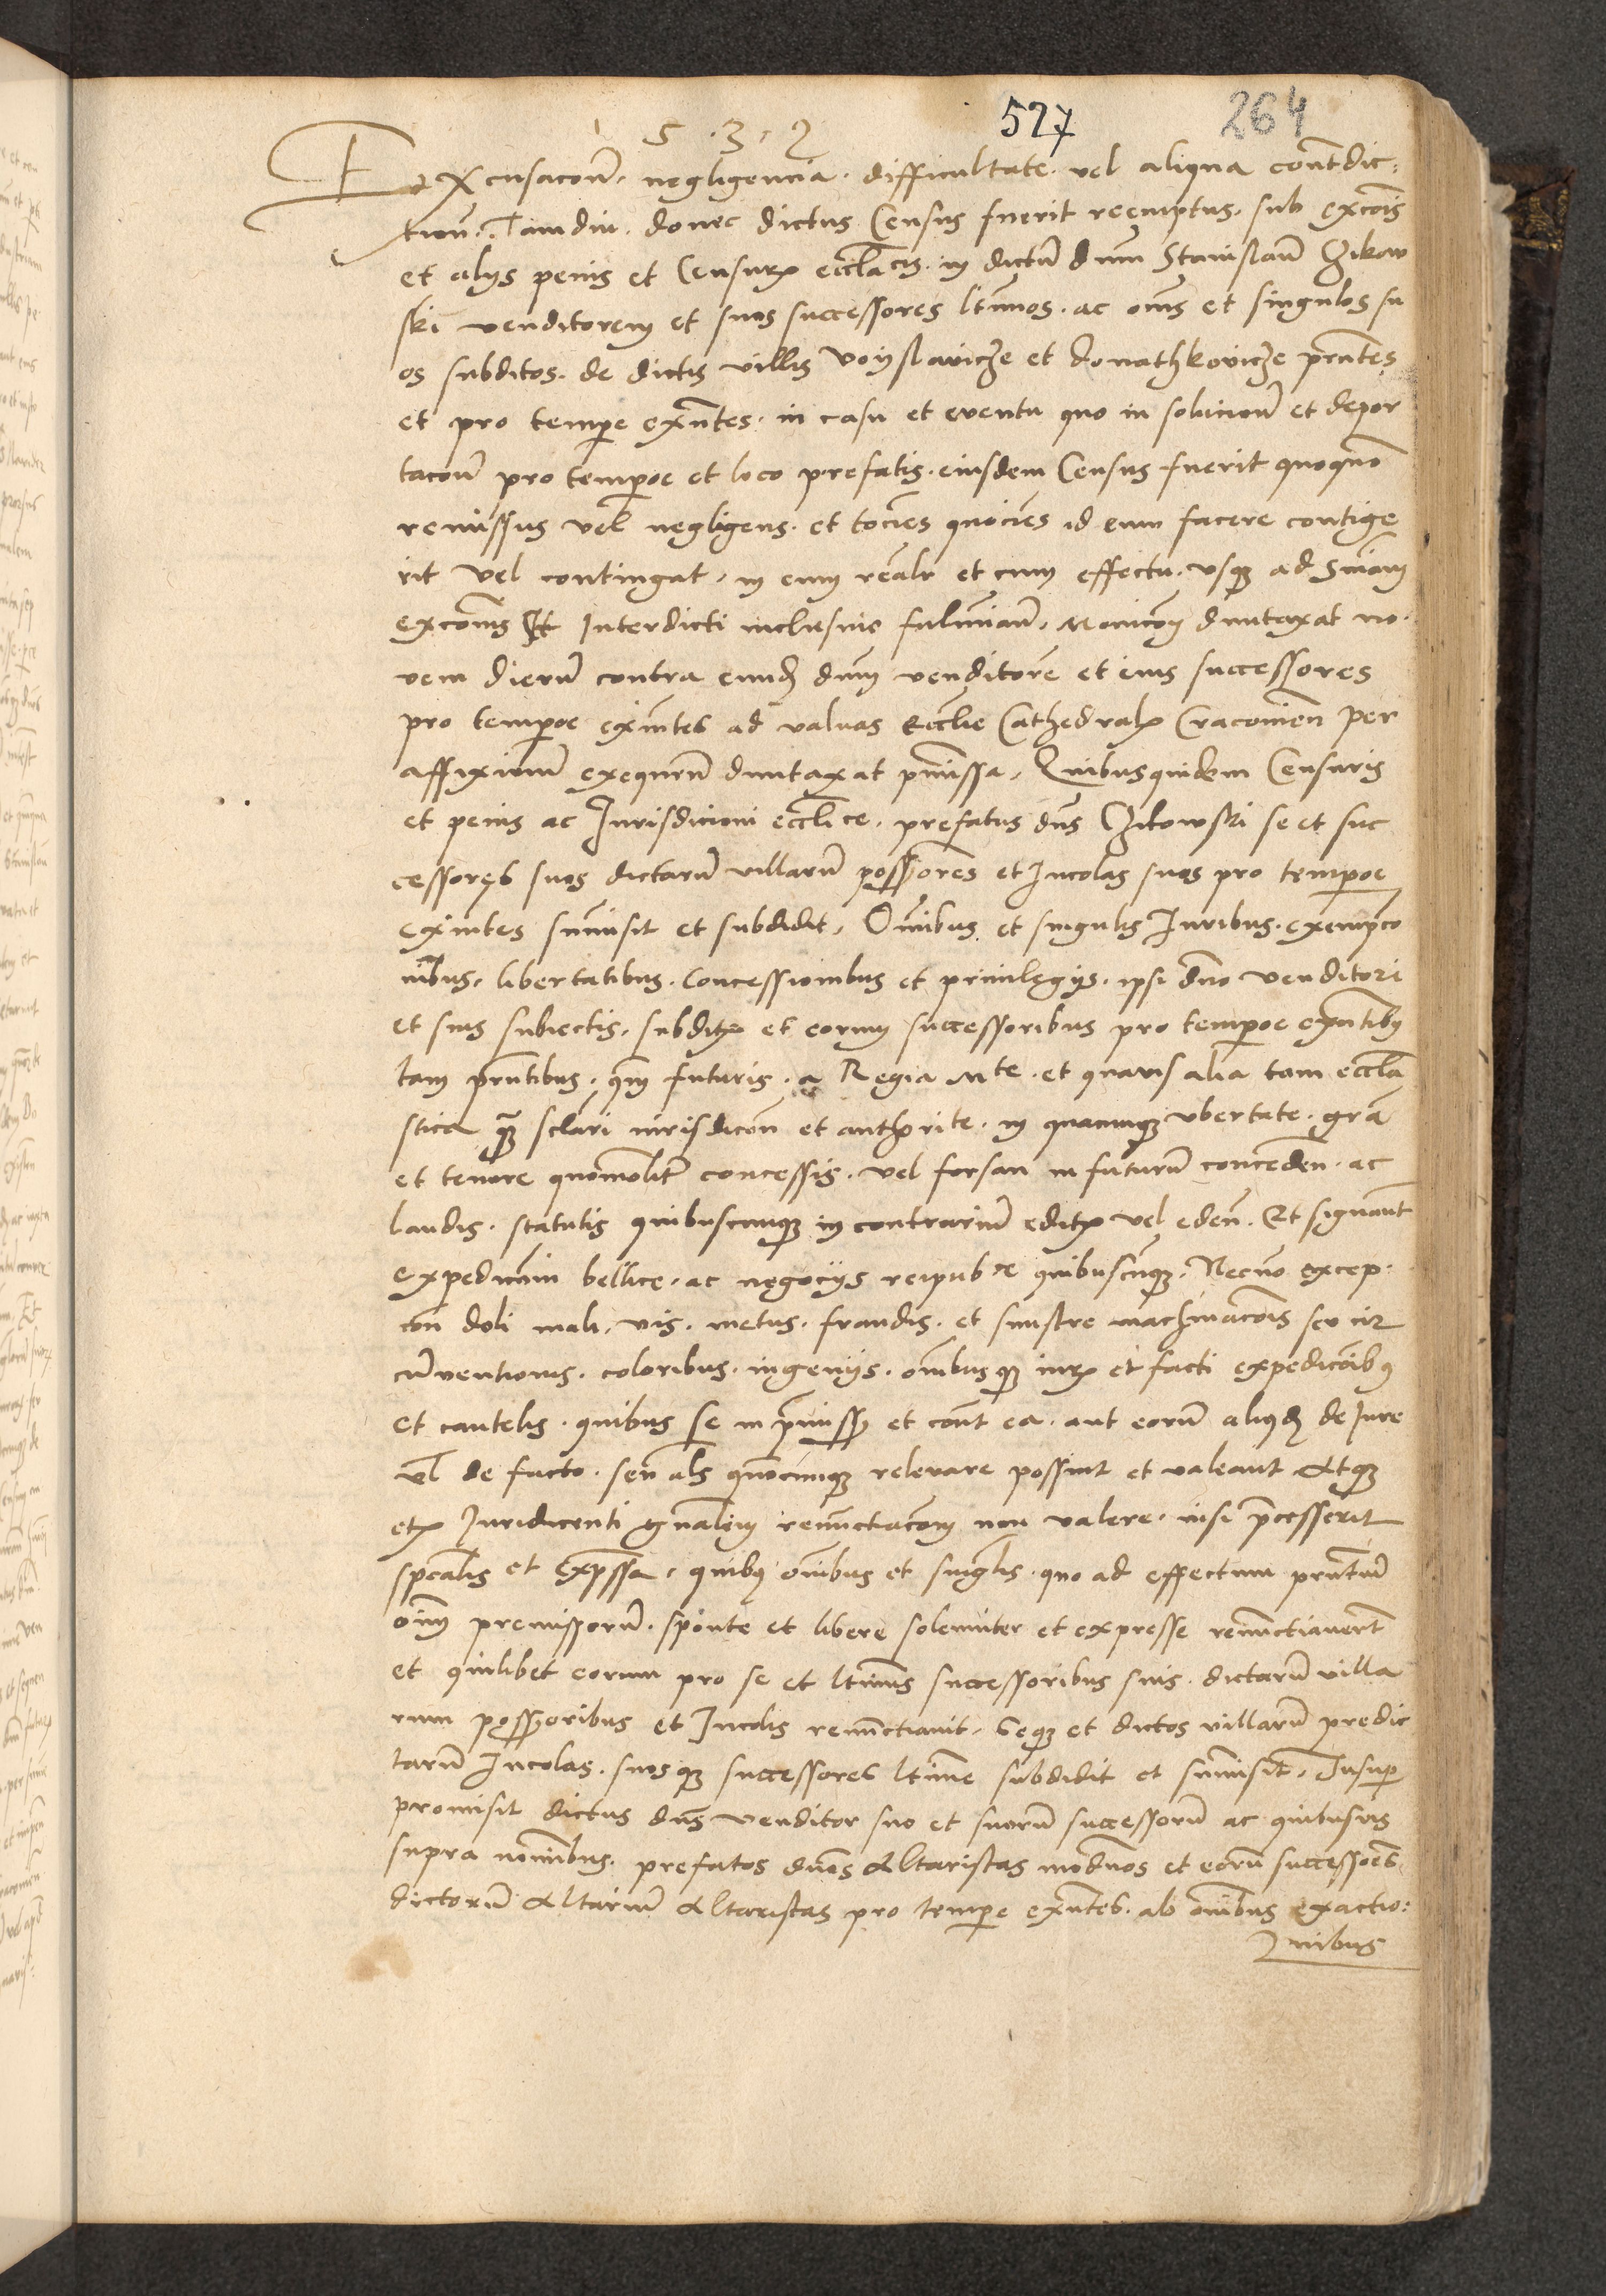 1 5 · 3 · 2
527
264
Excusacōne · negligencia · difficultate · vel aliqua cont̄dic:
tione · Tamdiu · donec dictus Census fuerit reemptus · sub exco͞is
et alÿs penis et Censuris eccl͞acis · in dictū dn͞um Stanislaū Czikow
ski venditorem et suos successores l͞timos · ac om͞s et singulos su
os subditos · de dictis villis Voyslavicze et donathkovicze pn͞tes
et pro tempe ex͞ntes · in casu et eventu quo in solucione et depor
tacōne pro tempore et loco prefatis · eiusdem Census fuerit quoquo
remissus vel negligens · et tocies quocies id eum facere contige
rit vel contingat, in eum real͞r et cum effectu · vsqȝ ad Sn͞iam
exco͞nis Et Interdicti inclusiue fulminan͞ · Monicōe duntaxat no
vem dierū contra eundē dnm̄ venditorē et eius successores
pro tempore existntes ad valuas Eccl͞ie Cathedralis Cracovien͞ per
affixionē exequen͞ duntaxat p̄missa, Quibusquidem Censuris
et penis ac Iurisdicioni eccl͞ice · prefatus dn͞s Czikowski se et suc
cessores suos dictarū villarū poss͞ores et Incolas suos pro tempore
existntes sum͞isit et subdidit, Om͞ibus et singulis Iuribus · exempco
nibus, libertatibus · Concessionibus et priuilegÿs · ipsi dn͞o venditori
et suis subiectis, subditis et eorum successoribus pro tempore ex͞ntibꝫ
tam pn͞tibus, qm̄ futuris · a Regia Mte · et quavis alia tam eccl͞a
stica qȝ sc͞lari iurisdicōn et auth͞orite · in quacunqȝ vbertate · gr͞a
et tenore quomo͞litꝛ concessis · vel forsan in futurū conceden͞ · ac
laudis · statutis quibuscunqȝ in contrariū editis vel eden͞ · Et signan͞t
expedic͞ioni bellice · ac negocÿs reipubce quibuscūqȝ · Necno͞ excep·
cōn doli mali, vis · metus · fraudis · et sinistre machinac͞ois seu cir
cūventionis · coloribus · ingenÿs · om͞ibusqȝ iuris et facti expedico͞ibꝫ
et cautelis · quibus se in p͞miss͞ et cont͞ ea · aut eorū aliqd͞ de Iure
vl͞ de facto · seu als quo͞cunqȝ relevare possint et valeant &tqȝ
etꝛ Iuridicenti gn͞alem renunctiaco͞em non valere · nisi p͞cesserit
spec͞alis et exp͞ssa, quibꝫ om͞ibus et sing͞lis · quo ad effectum pn͞tium
oi͞m premissorū · sponte et libere solenniter et expresse renunctiaver͞t
et quilibet eorum pro se et l͞timis successoribus suis · dictarū villa
rum poss͞oribus et Incolis renunctiavit, Seqȝ et dictos villarū predic
tarū Incolas · suosqȝ successores l͞time subdidit et sum͞isit, Insup͞
promisit dictus dn͞s venditor suo et suorū successorū ac quibus vis
supra no͞i͞nibus · prefatos dn͞os Altaristas modern͞os et eorū successo͞es
dictorū Altarium Altaristas pro tempe ex͞ntes · ab om͞ibus exactio:
nibus